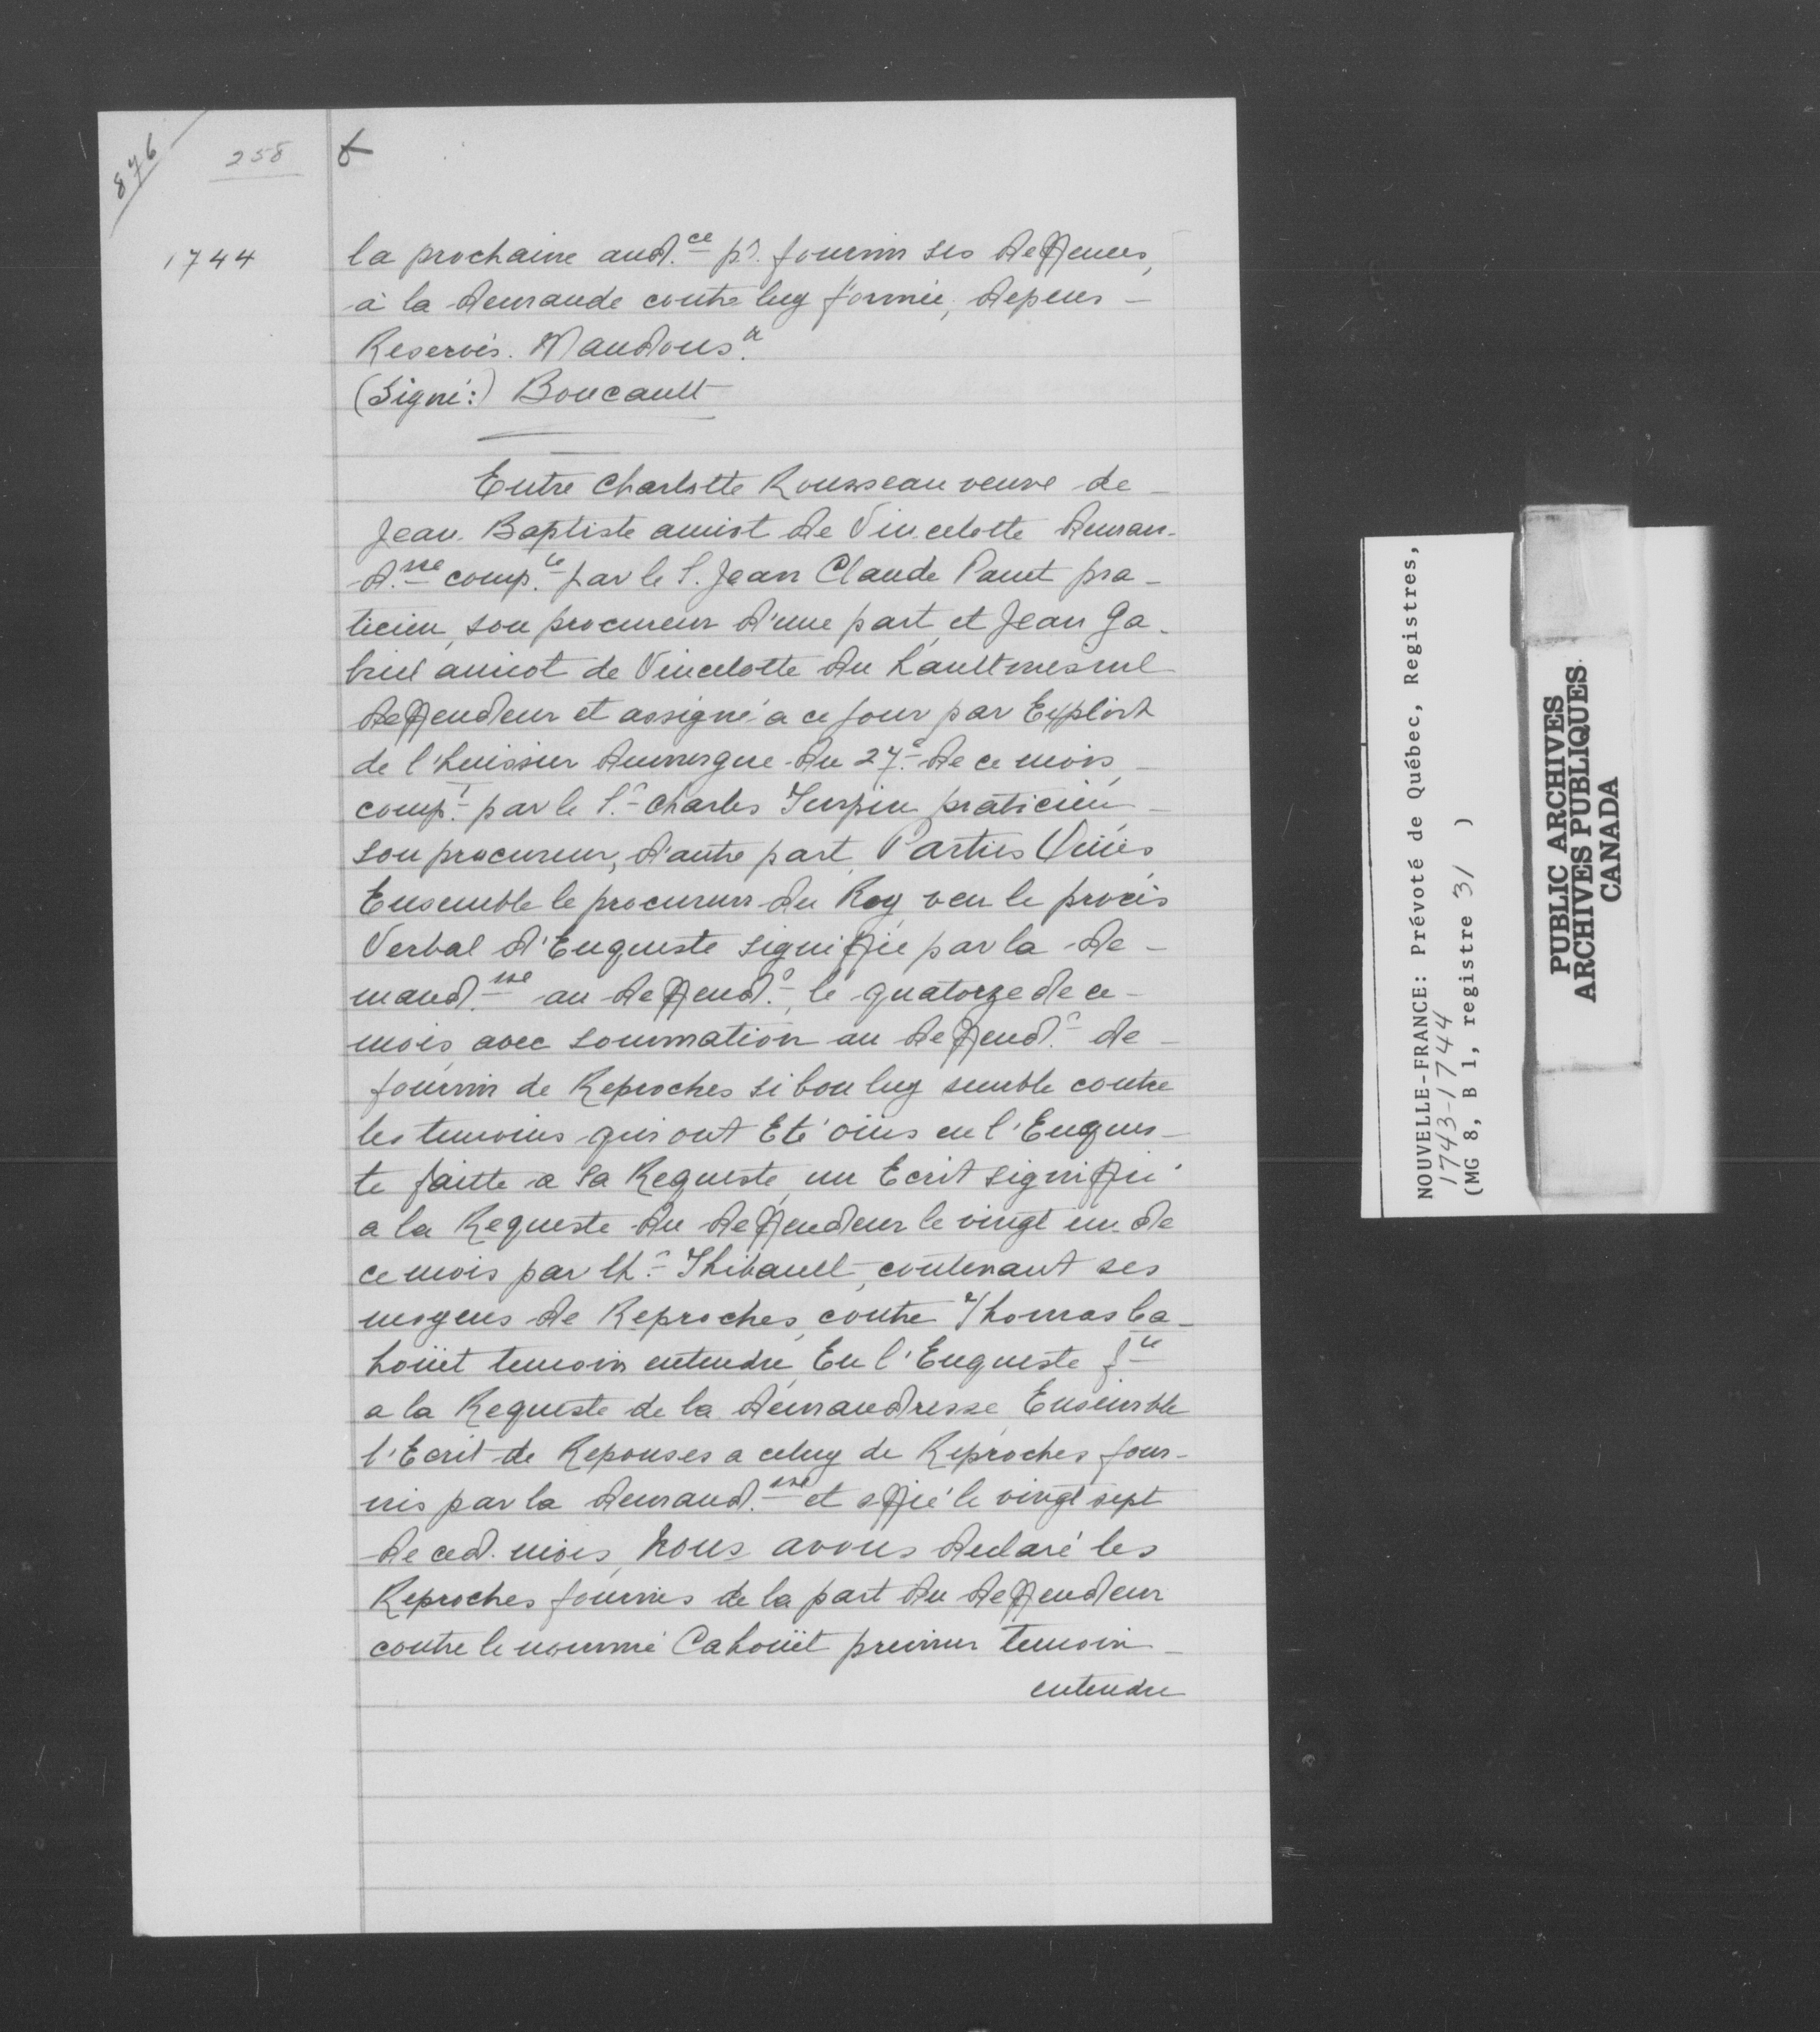 876
258
1744
la prochaine aud.ce pr. fournir ses deffences,
à la demande contre luy formée, depens
Reservés. Mandons.&
(Signé:) Boucault
Entre Charlotte Rousseau veuve de
Jean Baptiste amiot de Vincelotte deman-
d.sse comp.te par le S. Jean Claude Panet pra-
ticien, son procureur d'une part, et Jean Ga-
briel amiot de Vincelotte du haultmesnil
deffendeur et assigné a ce jour par Exploit
de l'huissier dumergue du 27.e de ce mois,
comp.t par le S.r Charles Turpin praticien
son procureur, d'autre part, Parties Ouïes
Ensemble le procureur du Roy, veu le procés
Verbal d'Enqueste signiffiée par la de-
mand.sse au deffend.r, le quatorze de ce
mois, avec sommation au deffend.r de
fournir de Reproches si bon luy semble contre
les temoins qui ont Eté oüis en l'Enques-
te faitte a sa Requeste, un Ecrit signiffié
a la Requeste du deffendeur le vingt un de
ce mois par Me. Thibault, contenant ses
moyens de Reproches, contre Thomas Ca-
hoüet temoin entendu, En l'Enqueste f.te
a la Requeste de la demandresse, Ensemble
l'Ecrit de Reponses a celuy de Reproches four-
nis par la demand.sse et sffié le vingt sept
de ced. mois, Nous avons declaré les
Reproches fournies de la part du deffendeur
contre le nommé Cahoüet premier temoin
entendu
NOUVELLE-FRANCE: Prévoté de Québec, Registres,
1743-1744
(MG 8, B 1, registre 31 )
PUBLIC ARCHIVES
ARCHIVES PUBLIQUES
CANADA